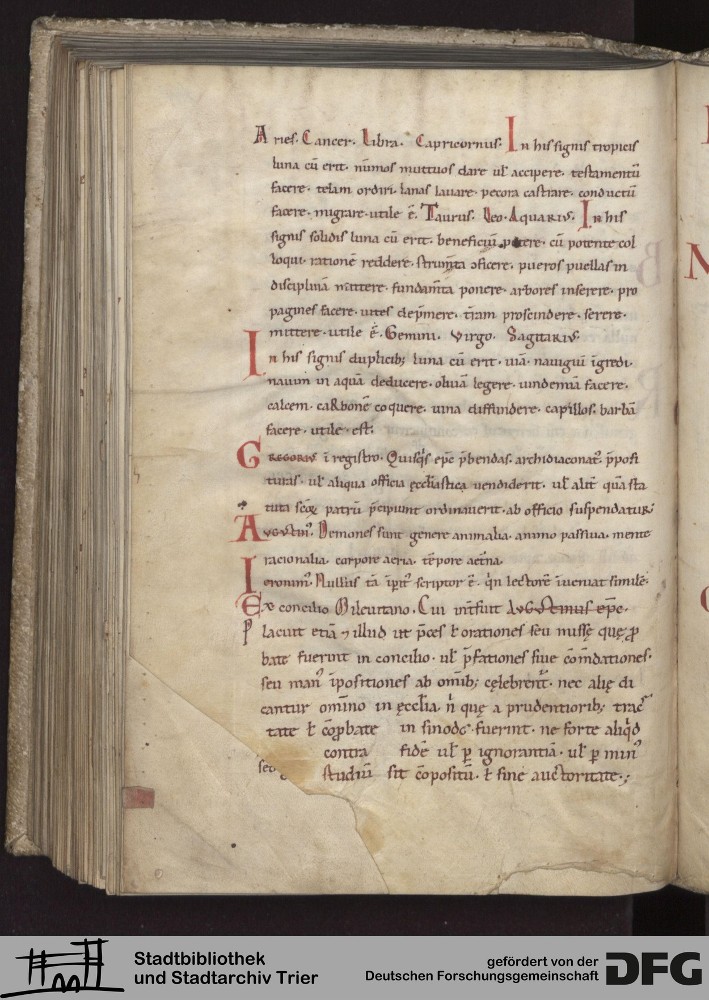 Aries. Cancer. Libra. Capricornus. In his signis tropicis
luna cū erit. nūmos muttuos dare ul̄ accipere. testamentū
facere. telam ordiri. lanas lauare. pecora castrare. conductū
facere. migrare. utile ē. Taurus. Leo. Aquarius. In his
signis solidis luna cū erit. beneficiū petere. cū potente col
loqui. rationē reddere. strum̄ta ɔficere. pueros puellas in
disciplinā mittere. fundam̄ta ponere. arbores inserere. pro
pagines facere. uites dep̄mere. t̄ram proscindere. serere.
mittere. utile ē. Gemini. Virgo. Sagitarius
In his signis duplicib; luna cū erit. uiā. nauigiū īgredi.
nauim in aquā deducere. oliuā legere. uindemiā facere.
calcem. carbonē coquere. uina diffundere. capillos. barbā
facere. utile est;
Gregorius ī registro. Quisq̄s ep̄e p̄bendas. archidiaconat᷒. p̄posi
turas. ul̄ aliqua officia ęccl̄iastica uendiderit. ul̄ alit̄ quā sta
tuta scōꝝ patrū p̄cipiunt ordinauerit. ab officio suspendatur
Augustin᷒. Demones sunt genere animalia. animo passiua. mente
racionalia. corpore aeria. tēpore aet̄na.
Ieronim᷒. Nullus tā īꝑit᷒ scriptor ē. q̄n lectorē īueniat similē.
Ex concilio Mileuitano. Cui int̄fuit Augustinus ep̄e.
Placuit etiā ⁊ illud ut p̄ces ł orationes seu missę quę ꝓ
bate fuerint in concilio. ul̄ p̄fationes siue cōm̄dationes.
seu man᷒ īpositiones ab om̄ib; cęlebrent᷑. nec alię di
cantur omīno in ęccl̄ia. n̄ quę a prudentiorib; trac
tate ł cōꝓbate in sinodo fuerint. ne forte aliq̄d
contra fidē ul̄ ꝑ ignorantiā. ul̄ ꝑ min᷒
studiū sit cōpositū. ł sine auctoritate.;
Stadtbibliothek
und Stadtarchiv Trier
gefördert von der
Deutschen Forschungsgemeinschaft
DFG